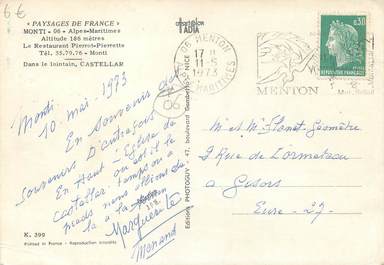 6€
« PAYSAGES DE FRANCE »
MONTI - 06 - Alpes-Maritimes
Altitude 186 mètres
Le Restaurant Pierrot-Pierrette
Tél. 35.79.76 - Monti
Dans le lointain, CASTELLAR
Monti.
10 mai. 1973
En Souvenir des
Souvenirs D'autrefois
En Haut - Eglise de
Castellar où
pieds nous
la a la
Marguerite
Menand
K. 399
Printed in France - Reproduction interdite
Editions PHOTOGUY - 47, boulevard Gambetta - NICE
TADIA
06 MENTON
17 H
11-5
1973
ALPES MARITIMES
MENTON
0,30
M et Mme Planet Géomètre
Rue de l'ormeteau
Gisors
Eure - 27 -